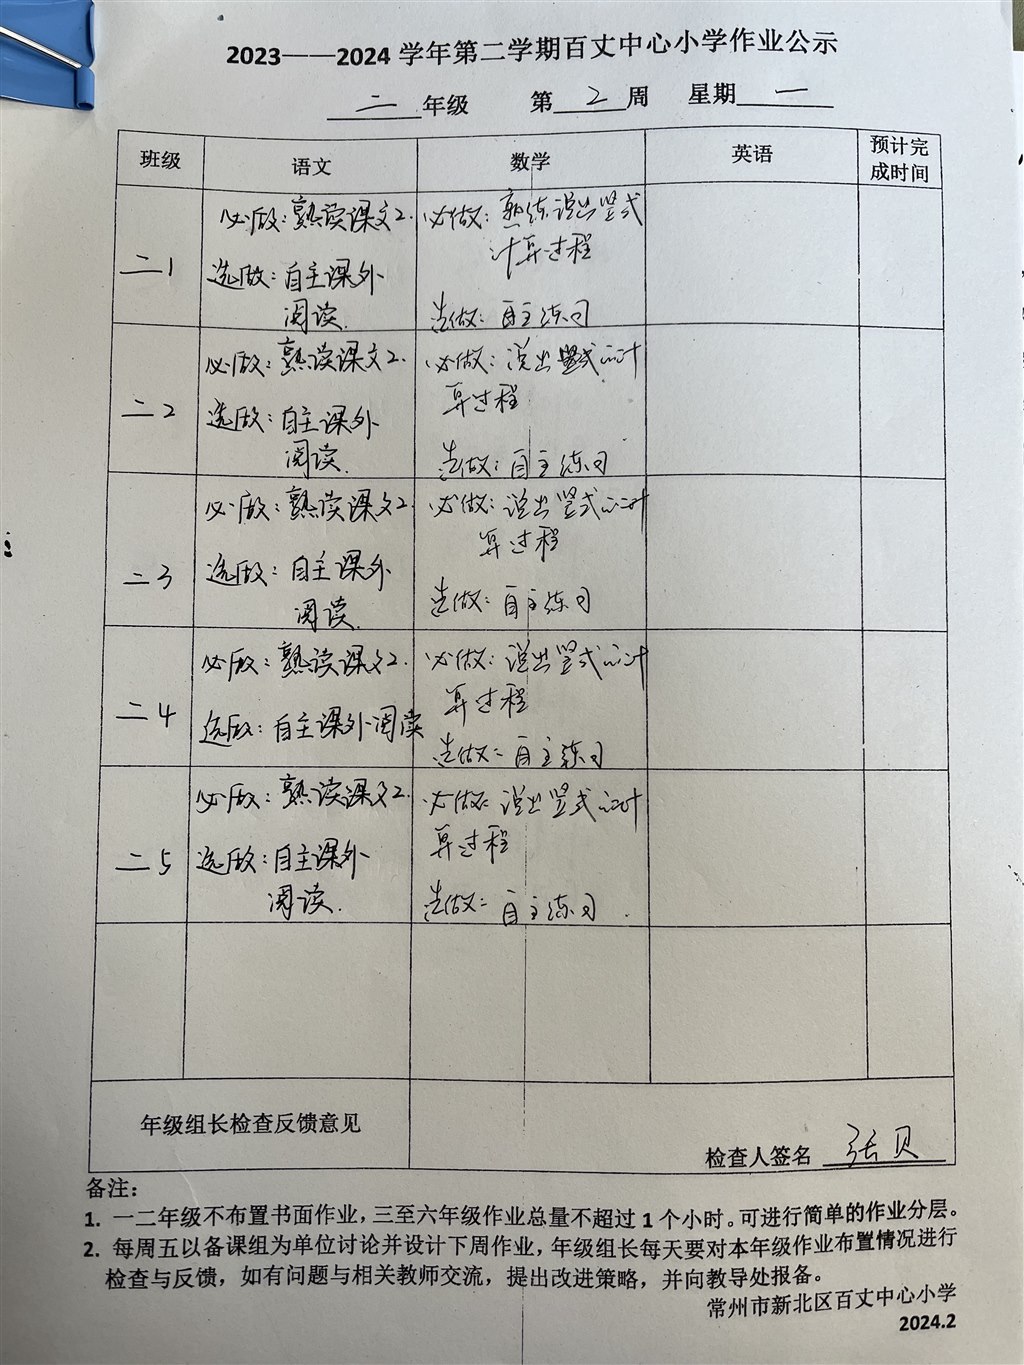 2023——2024 学年第二学期百丈中心小学作业公示
二年级 第2周 星期一
班级 语文 数学 英语 预计完
成时间
二1
必做：熟读课文2.
选做：自主课外
阅读.
必做：熟练说出竖式
计算过程
选做：自主练习
二2
必做：熟读课文2.
选做：自主课外
阅读.
必做：说出竖式的计
算过程
选做：自主练习
二3
必做：熟读课文2
选做：自主课外
阅读.
必做：说出竖式的计
算过程
选做：自主练习
二4
必做：熟读课文2.
选做：自主课外阅读
必做：说出竖式的计
算过程
选做：自主练习
二5
必做：熟读课文2.
选做：自主课外
阅读.
必做：说出竖式的计
算过程
选做：自主练习.
年级组长检查反馈意见
检查人签名 张贝
备注：
1. 一二年级不布置书面作业，三至六年级作业总量不超过 1 个小时。可进行简单的作业分层。
2. 每周五以备课组为单位讨论并设计下周作业，年级组长每天要对本年级作业布置情况进行
检查与反馈，如有问题与相关教师交流，提出改进策略，并向教导处报备。
常州市新北区百丈中心小学
2024.2